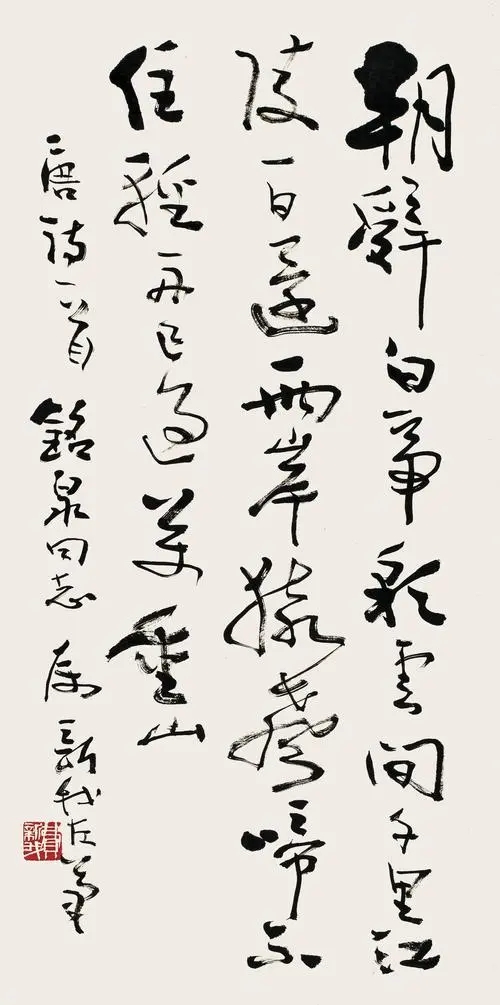 朝辭白帝彩雲間千里江
陵一日還兩岸猿聲啼不
住輕舟已過萬重山
唐詩一首 銘泉同志 屬 新我左筆
費新我